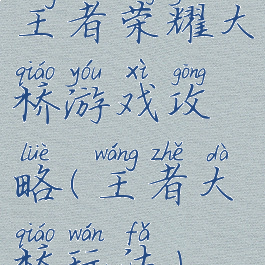 王者荣耀大
qiáo yóu xì gōng
桥游戏攻
lüè wáng zhě dà
略(王者大
qiáo wán fǎ
桥玩法)